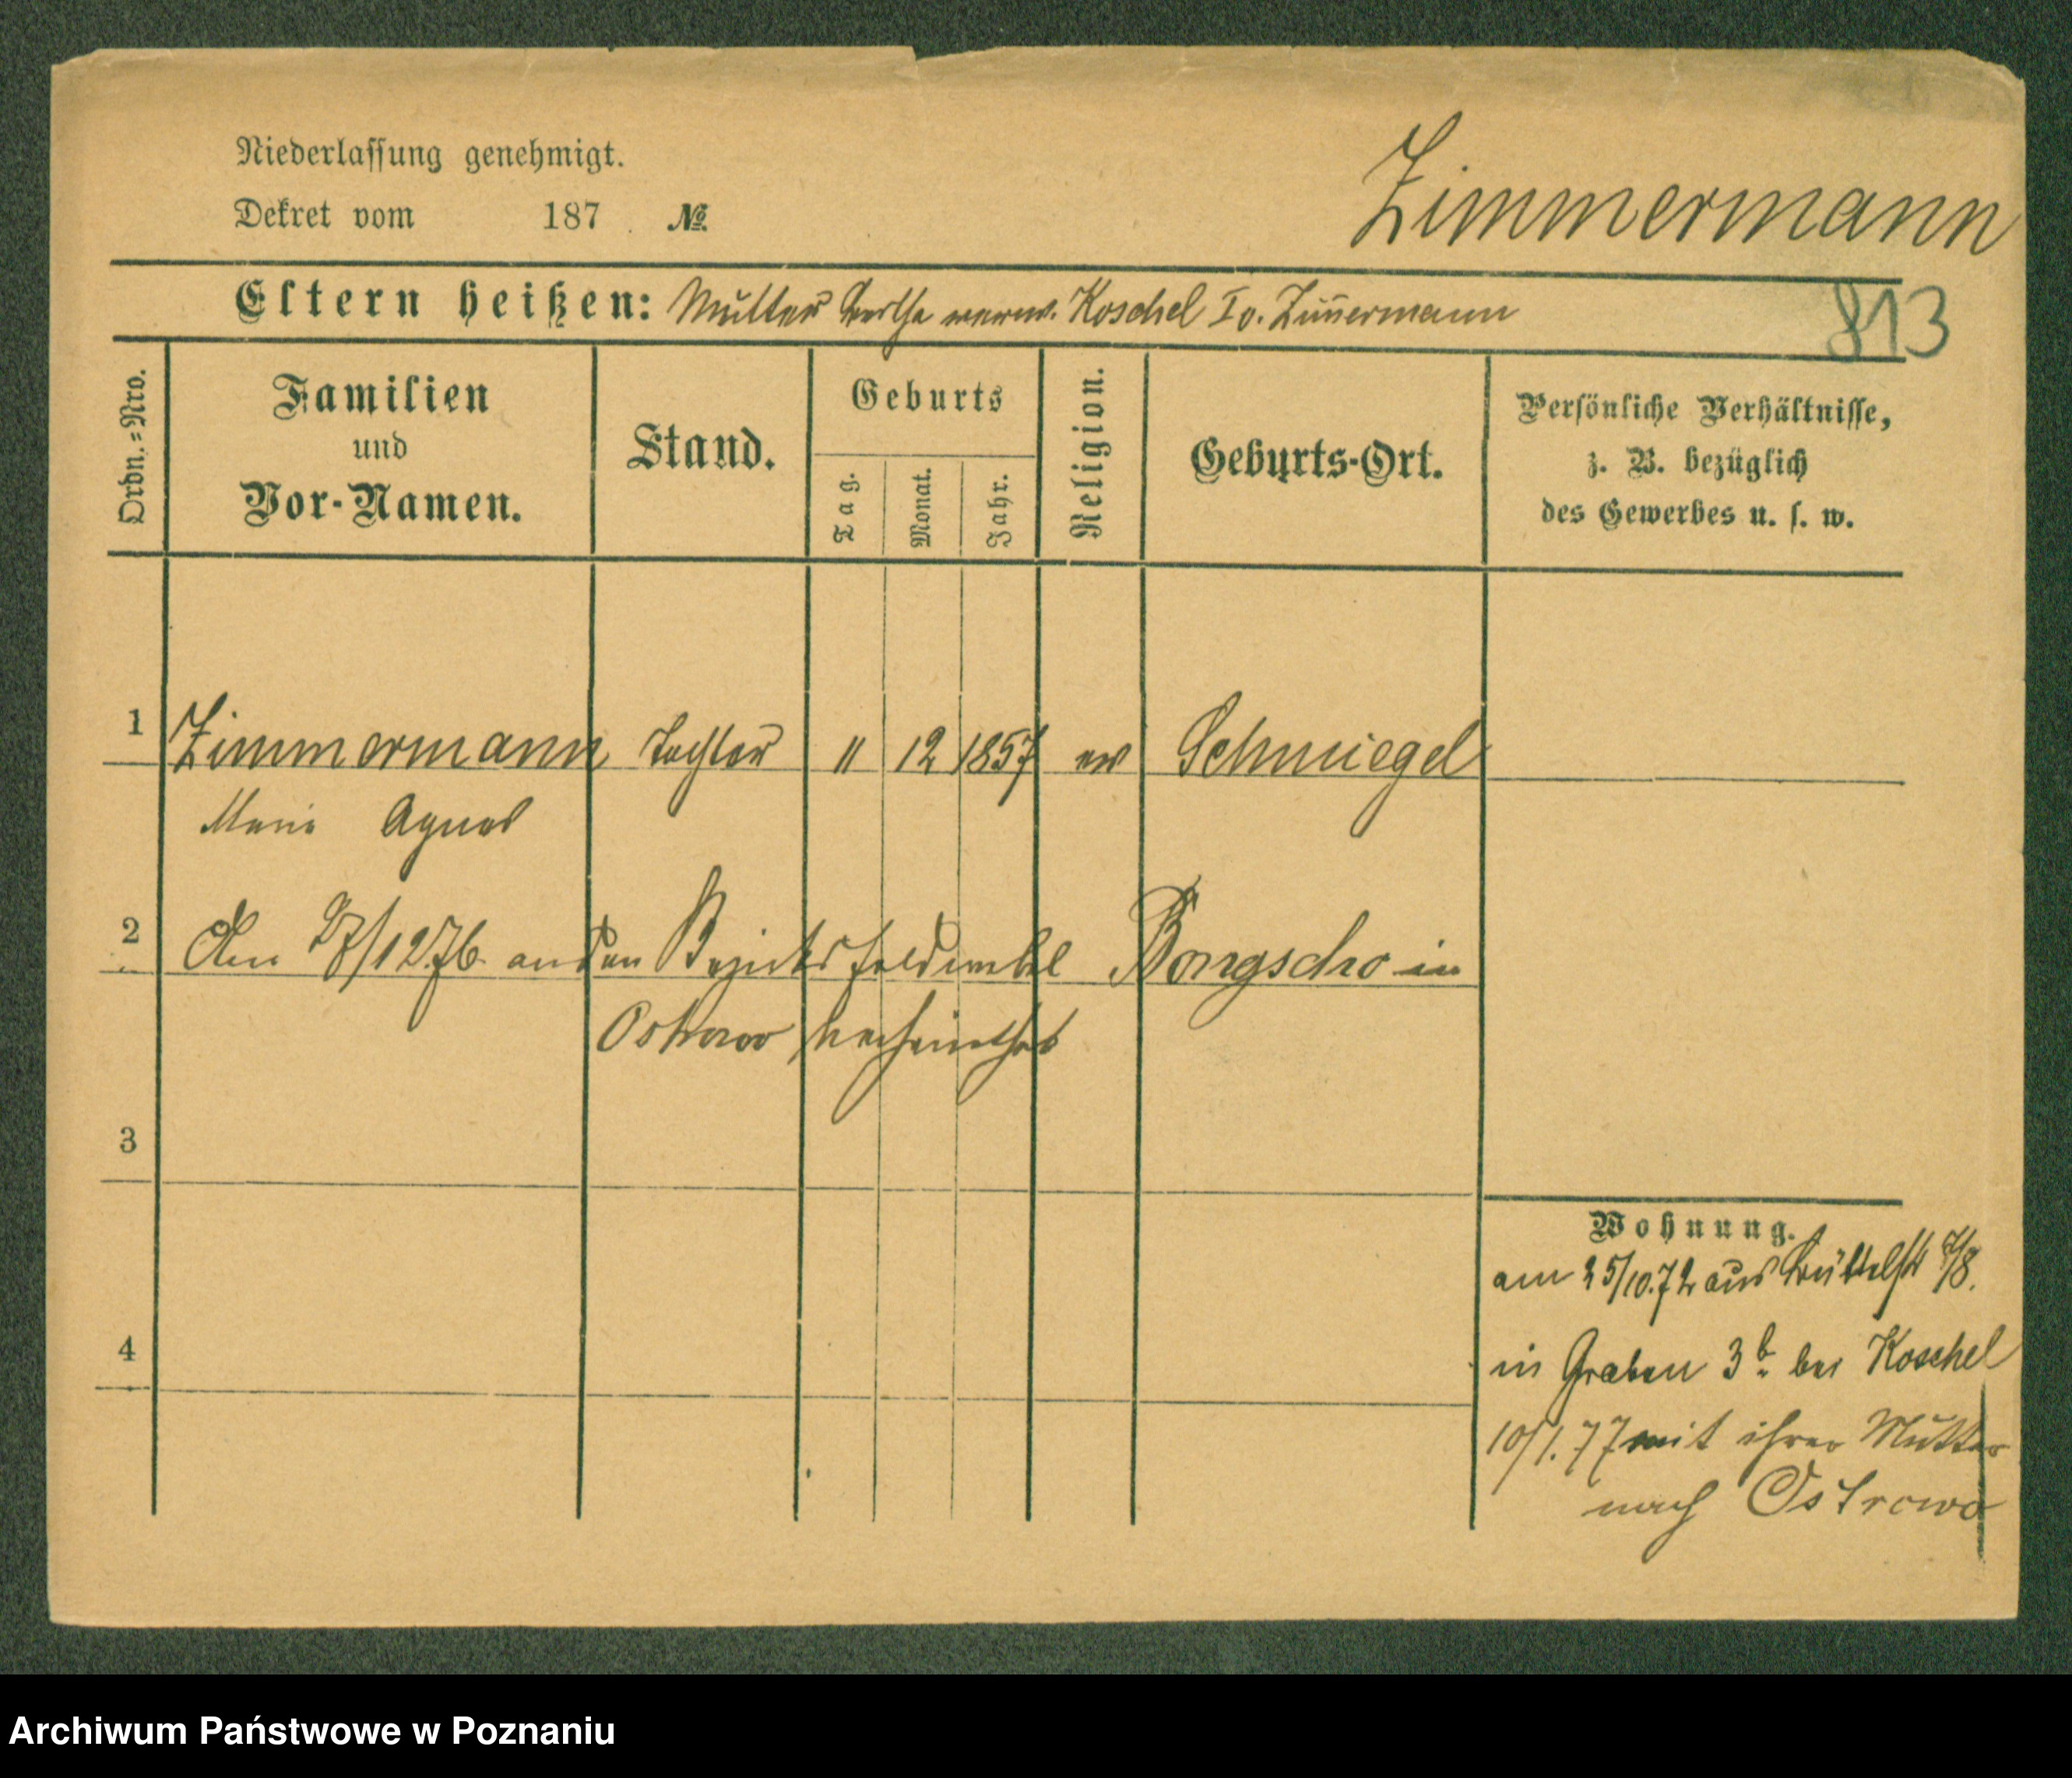 Niederlassung genehmigt.
Dekret vom 187 . №.
Zimmermann
Eltern heißen: Mutter Bertha verw. Koschel I v. Zim̄ermann
813
Ordn.=Nro.
Familien
und
Vor-Namen.
Stand.
Geburts
Tag.
Monat.
Jahr.
Religion.
Geburts-Ort.
Persönliche Verhältnisse,
z. B. bezüglich
des Gewerbes u. s. w.
1 Zimmermann Tochter 11 12 1857 ev Schmiegel
Marie Agnes
2 Am 27/12.76 an den Bezirksfeldwebel Bongscho in
Ostrowo verheirathet
3
4
Wohnung.
am 25/10.72 aus Büttelstr 7/8.
in Graben 3b bei Koschel
10/1.77 mit ihrer Mutter
nach Ostrowo
Archiwum Państwowe w Poznaniu